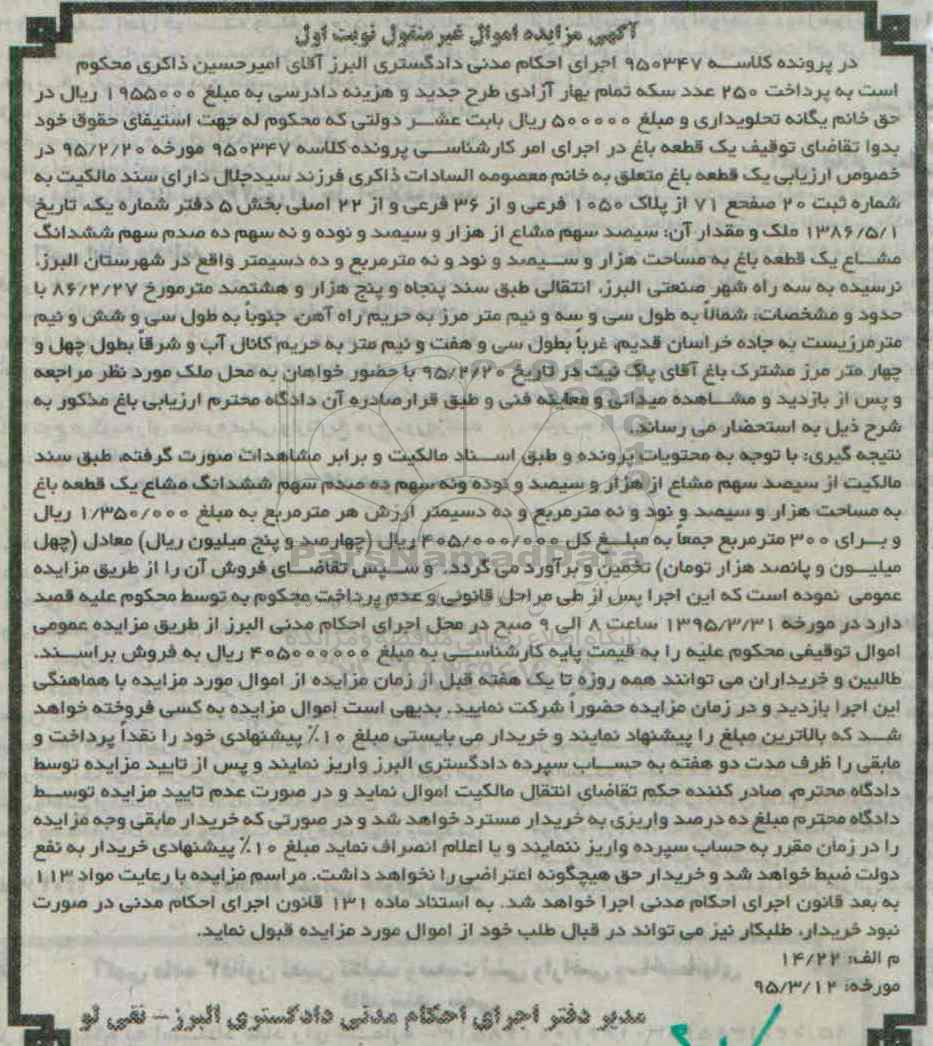 آگهی مزایده اموال غیر منقول نوبت اول
در پرونده کلاسه ۹۵۰۳۴۷ اجرای احکام مدنی دادگستری البرز آقای امیرحسین ذاکری محکوم
است به پرداخت ۲۵۰ عدد سکه تمام بهار آزادی طرح جدید و هزینه دادرسی به مبلغ ۱۹۵۵۰۰۰ ریال در
حق خانم یگانه تحلویداری و مبلغ ۵۰۰۰۰۰ ریال بابت عشر دولتی که محکوم له جهت استیفای حقوق خود
بدوا تقاضای توقیف یک قطعه باغ در اجرای امر کارشناسی پرونده کلاسه ۹۵۰۳۴۷ مورخه ۹۵/۲/۲۰ در
خصوص ارزیابی یک قطعه باغ متعلق به خانم معصومه السادات ذاکری فرزند سیدجلال دارای سند مالکیت به
شماره ثبت ۲۰ صفحع ۷۱ از پلاک ۱۰۵۰ فرعی و از ۳۶ فرعی و از ۲۲ اصلی بخش ۵ دفتر شماره یک، تاریخ
۱۳۸۶/۵/۱ ملک و مقدار آن: سیصد سهم مشاع از هزار و سیصد و نوده و نه سهم ده صدم سهم ششدانگ
مشاع یک قطعه باغ به مساحت هزار و سیصد و نود و نه مترمربع و ده دسیمتر واقع در شهرستان البرز،
نرسیده به سه راه شهر صنعتی البرز، انتقالی طبق سند پنجاه و پنج هزار و هشتصد مترمورخ ۸۶/۲/۲۷ با
حدود و مشخصات: شمالاً به طول سی و سه و نیم متر مرز به حریم راه آهن، جنوباً به طول سی و شش و نیم
مترمرزیست به جاده خراسان قدیم، غرباً بطول سی و هفت و نیم متر به حریم کانال آب و شرقاً بطول چهل و
چهار متر مرز مشترک باغ آقای پاک نیت در تاریخ ۹۵/۲/۲۰ با حضور خواهان به محل ملک مورد نظر مراجعه
و پس از بازدید و مشاهده میدانی و معاینه فنی و طبق قرارصادره آن دادگاه محترم ارزیابی باغ مذکور به
شرح ذیل به استحضار می رساند.
نتیجه گیری: با توجه به محتویات پرونده و طبق اسناد مالکیت و برابر مشاهدات صورت گرفته، طبق سند
مالکیت از سیصد سهم مشاع از هزار و سیصد و نوده ونه سهم ده صدم سهم ششدانگ مشاع یک قطعه باغ
به مساحت هزار و سیصد و نود و نه مترمربع و ده دسیمتر ارزش هر مترمربع به مبلغ ۱/۳۵۰/۰۰۰ ریال
و برای ۳۰۰ مترمربع جمعاً به مبلغ کل ۴۰۵/۰۰۰/۰۰۰ ریال (چهارصد و پنج میلیون ریال) معادل (چهل
میلیون و پانصد هزار تومان) تخمین و برآورد می گردد. و سپس تقاضای فروش آن را از طریق مزایده
عمومی نموده است که این اجرا پس از طی مراحل قانونی و عدم پرداخت محکوم به توسط محکوم علیه قصد
دارد در مورخه ۱۳۹۵/۳/۳۱ ساعت ۸ الی ۹ صبح در محل اجرای احکام مدنی البرز از طریق مزایده عمومی
اموال توقیفی محکوم علیه را به قیمت پایه کارشناسی به مبلغ ۴۰۵۰۰۰۰۰۰ ریال به فروش براسند.
طالبین و خریداران می توانند همه روزه تا یک هفته قبل از زمان مزایده از اموال مورد مزایده با هماهنگی
این اجرا بازدید و در زمان مزایده حضوراً شرکت نمایید. بدیهی است اموال مزایده به کسی فروخته خواهد
شد که بالاترین مبلغ را پیشنهاد نمایند و خریدار می بایستی مبلغ ۱۰٪ پیشنهادی خود را نقداً پرداخت و
مابقی را ظرف مدت دو هفته به حساب سپرده دادگستری البرز واریز نمایند و پس از تایید مزایده توسط
دادگاه محترم، صادر کننده حکم تقاضای انتقال مالکیت اموال نماید و در صورت عدم تایید مزایده توسط
دادگاه محترم مبلغ ده درصد واریزی به خریدار مسترد خواهد شد و در صورتی که خریدار مابقی وجه مزایده
را در زمان مقرر به حساب سپرده واریز ننمایند و یا اعلام انصراف نماید مبلغ ۱۰٪ پیشنهادی خریدار به نفع
دولت ضبط خواهد شد و خریدار حق هیچگونه اعتراضی را نخواهد داشت. مراسم مزایده با رعایت مواد ۱۱۳
به بعد قانون اجرای احکام مدنی اجرا خواهد شد. به استناد ماده ۱۳۱ قانون اجرای احکام مدنی در صورت
نبود خریدار، طلبکار نیز می تواند در قبال طلب خود از اموال مورد مزایده قبول نماید.
م الف: ۱۴/۲۲
مورخه: ۹۵/۳/۱۲
مدیر دفتر اجرای احکام مدنی دادگستری البرز – نقی لو
ParsNamadData